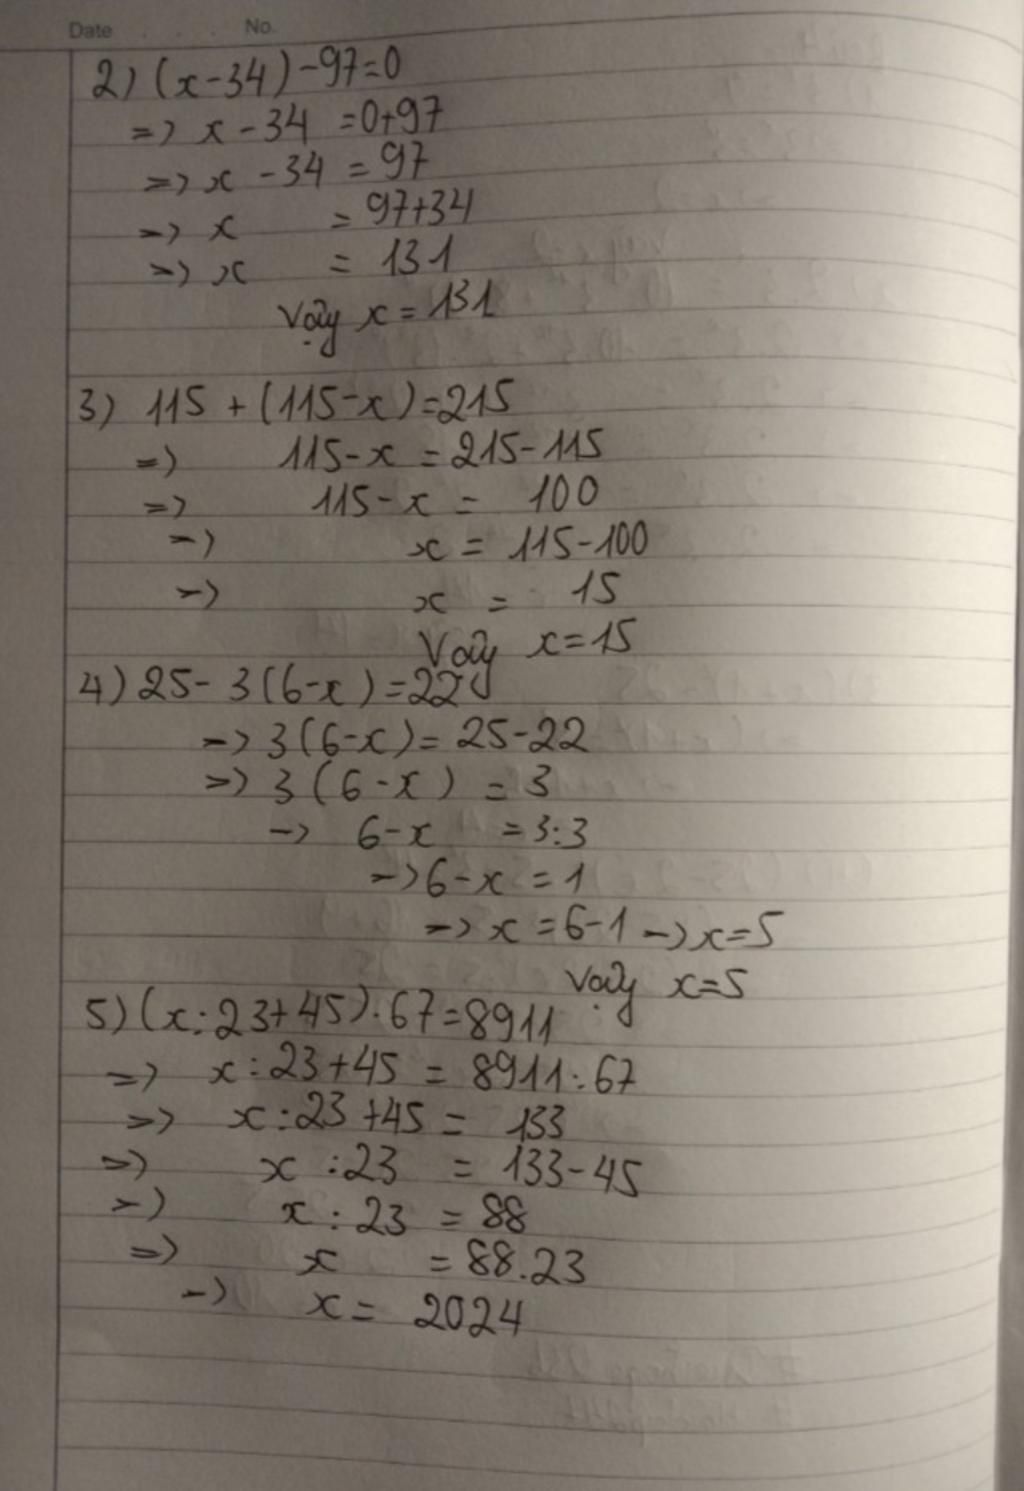 Date No.
2) (x-34)-97=0
=> x-34 =0+97
=> x -34 = 97
=> x = 97+34
=> x = 131
Vậy x = 131
3) 115 + (115-x)=215
=> 115-x = 215-115
=> 115-x = 100
=> x = 115-100
=> x = 15
Vậy x=15
4) 25- 3(6-x)=22
=> 3(6-x)= 25-22
=> 3(6-x) = 3
=> 6-x = 3:3
=> 6-x = 1
=> x = 6-1 => x=5
Vậy x=5
5) (x:23+45).67=8911
=> x:23+45 = 8911:67
=> x:23+45 = 133
=> x :23 = 133-45
=> x : 23 = 88
=> x = 88.23
=> x = 2024